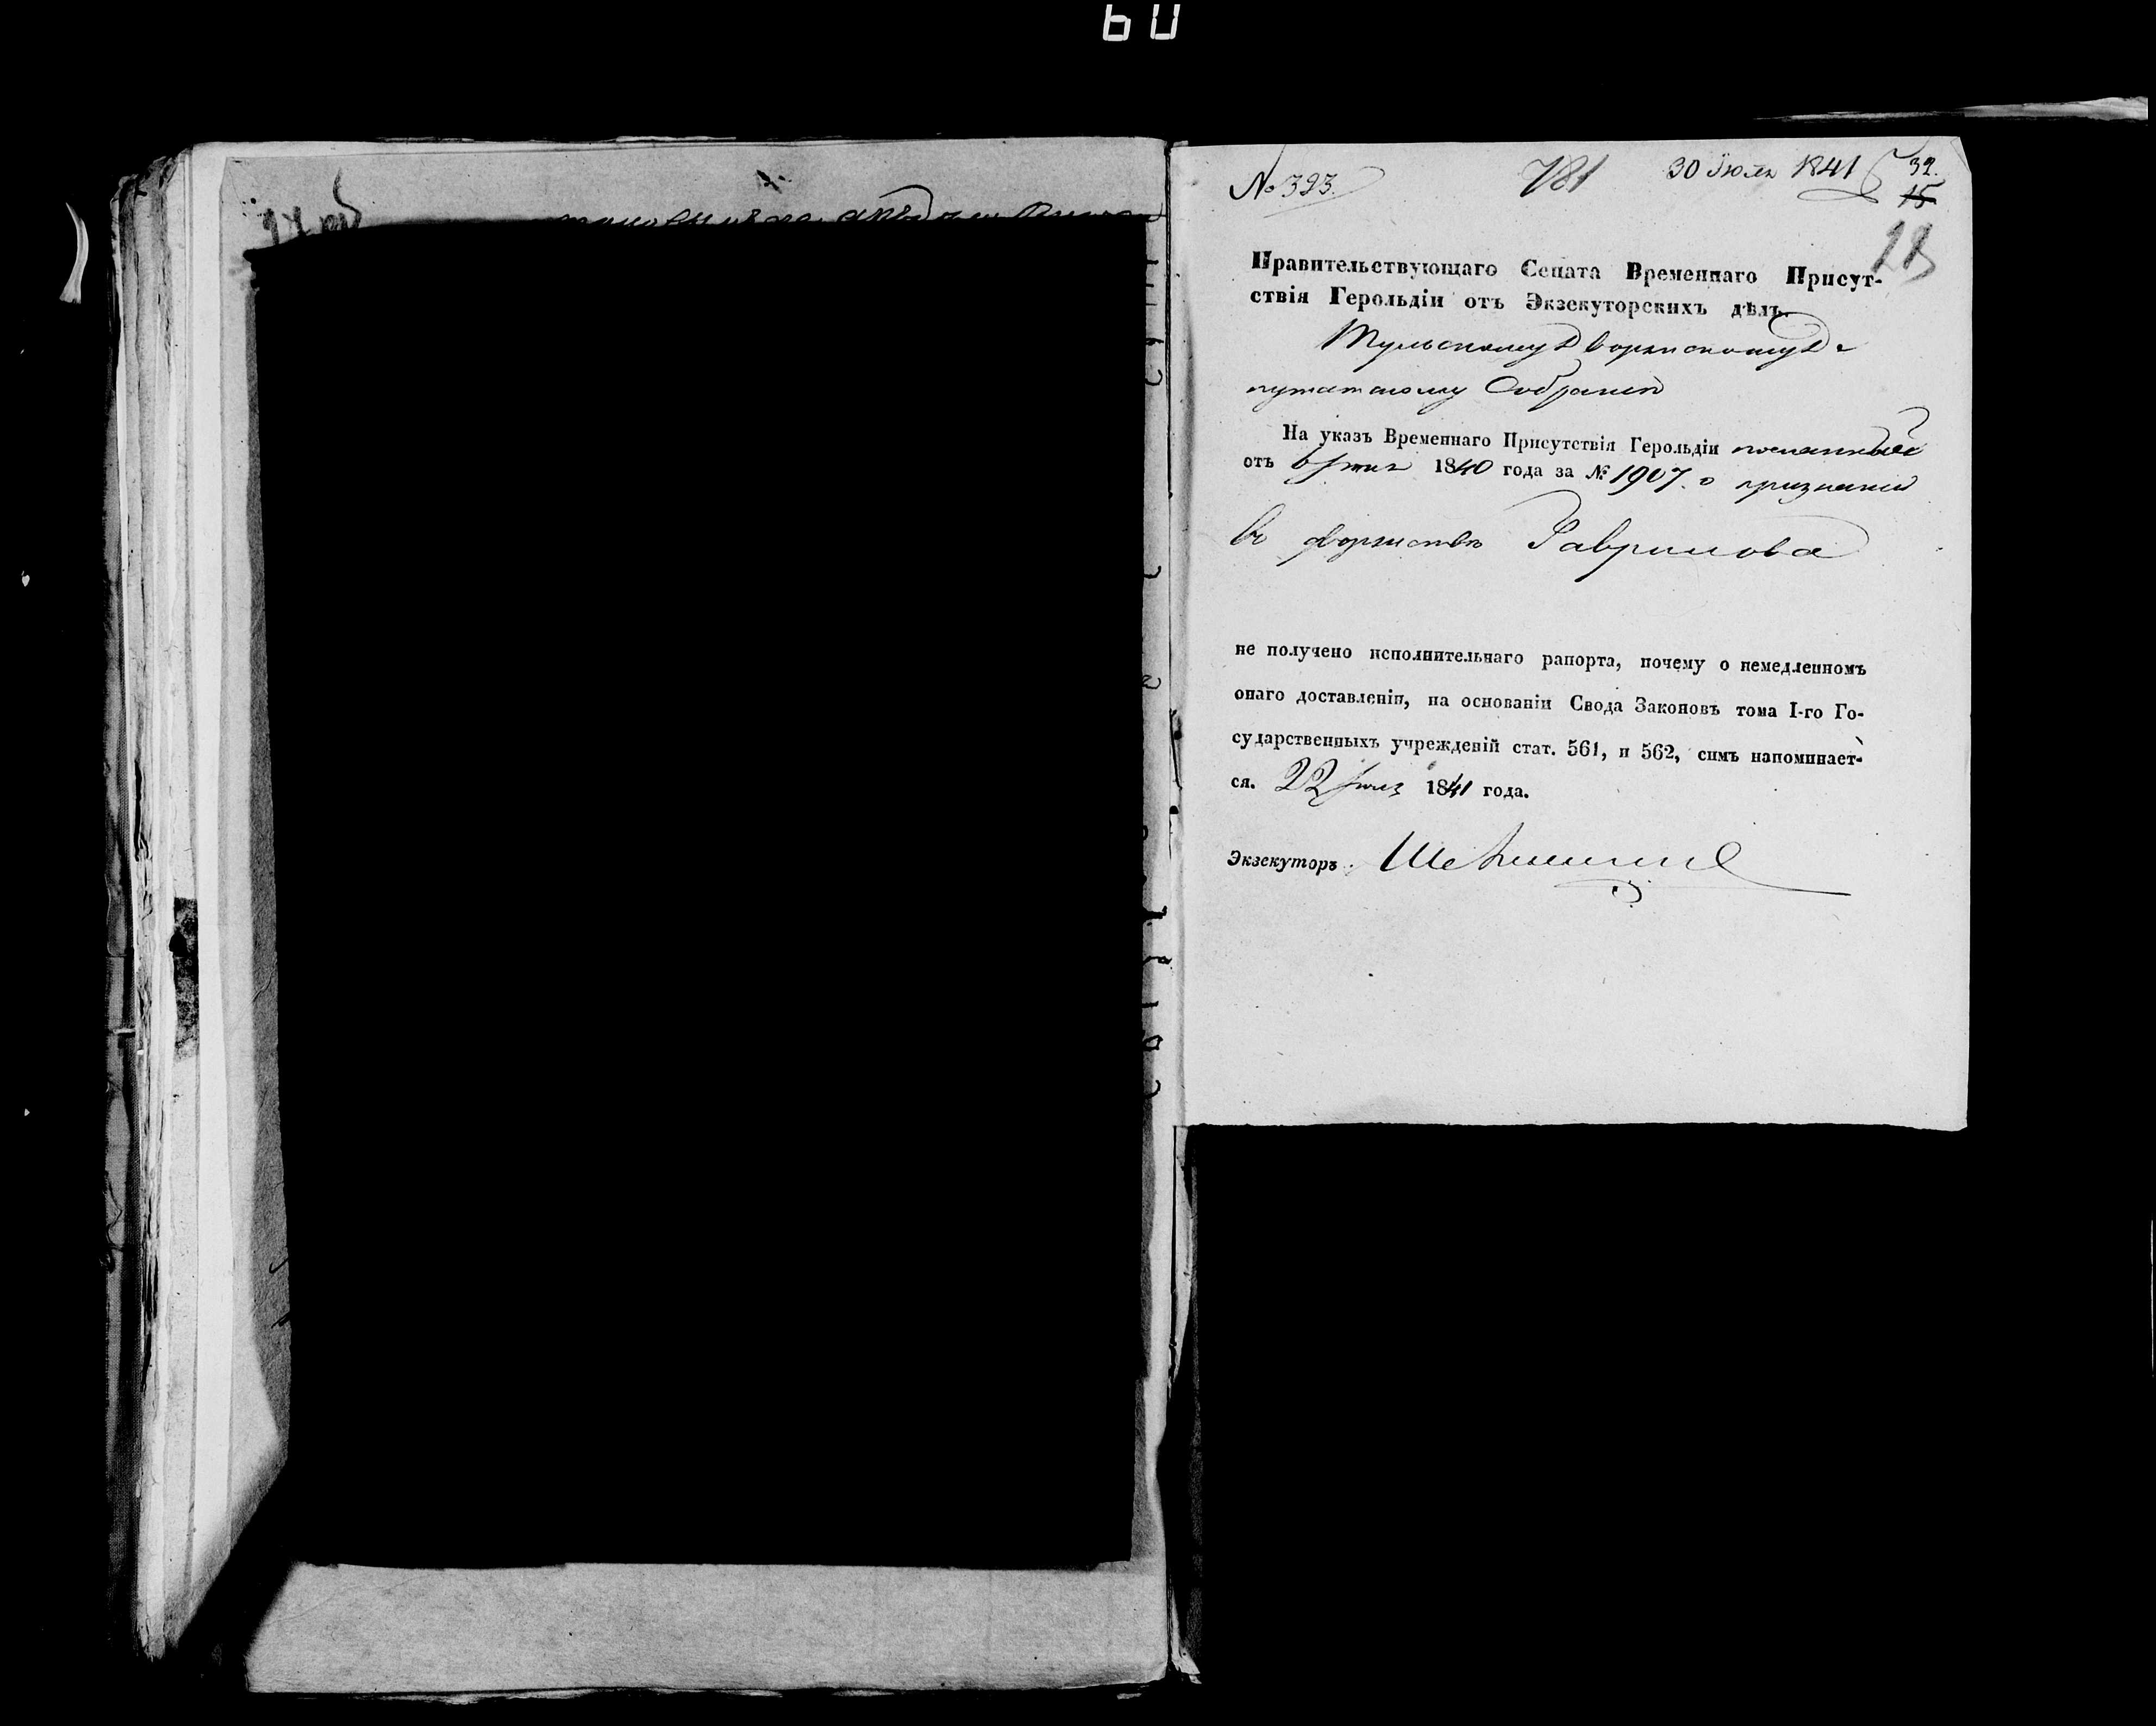 60
№ 323.
781
30 Июля 1841
32.
15
Правительствующаго Сената Временнаго Присут-
ствія Герольдіи отъ Экзекуторскихъ дѣлъ.
Тульскому Дворянскому Де
путатскому Собранію
На указъ Временнаго Присутствія Герольдіи посланный
отъ 1840 года за № 1907. о признаніи
въ дворянствѣ Гаврилова
не получено исполнительнаго рапорта, почему о немедленномъ
онаго доставленіи, на основаніи Свода Законовъ тома I-го Го-
сударственныхъ учрежденій стат. 561, и 562, симъ напоминает-
ся. 22 1841 года.
Экзекуторъ